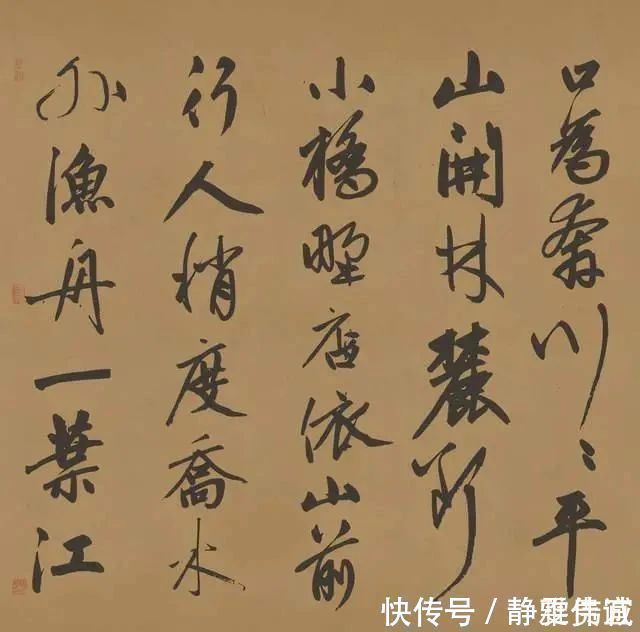 口為奔川〻平
山開林麓斷
小橋野店依山前
行人稍度喬木
外漁舟一葉江
快传号 / 静雅